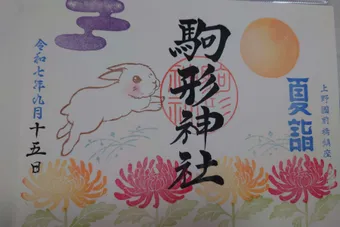 上野國前橋鎮座
夏詣
駒形神社
令和七年九月
十五日